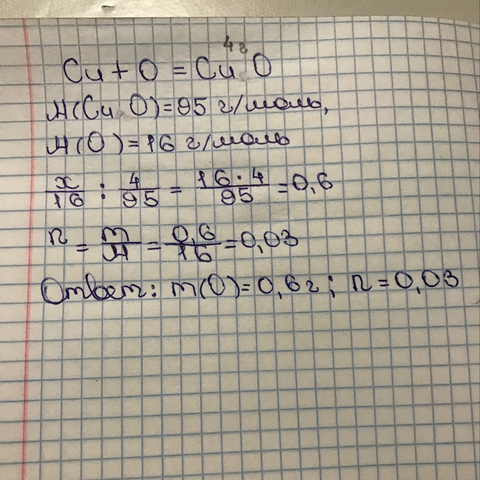 4г
Cu + O = CuO
M(CuO) = 95 г/моль,
M(O) = 16 г/моль
x/16 : 4/95 = 16·4/95 = 0,6
n = m/M = 0,6/16 = 0,03
Ответ: m(O) = 0,6г; n = 0,03